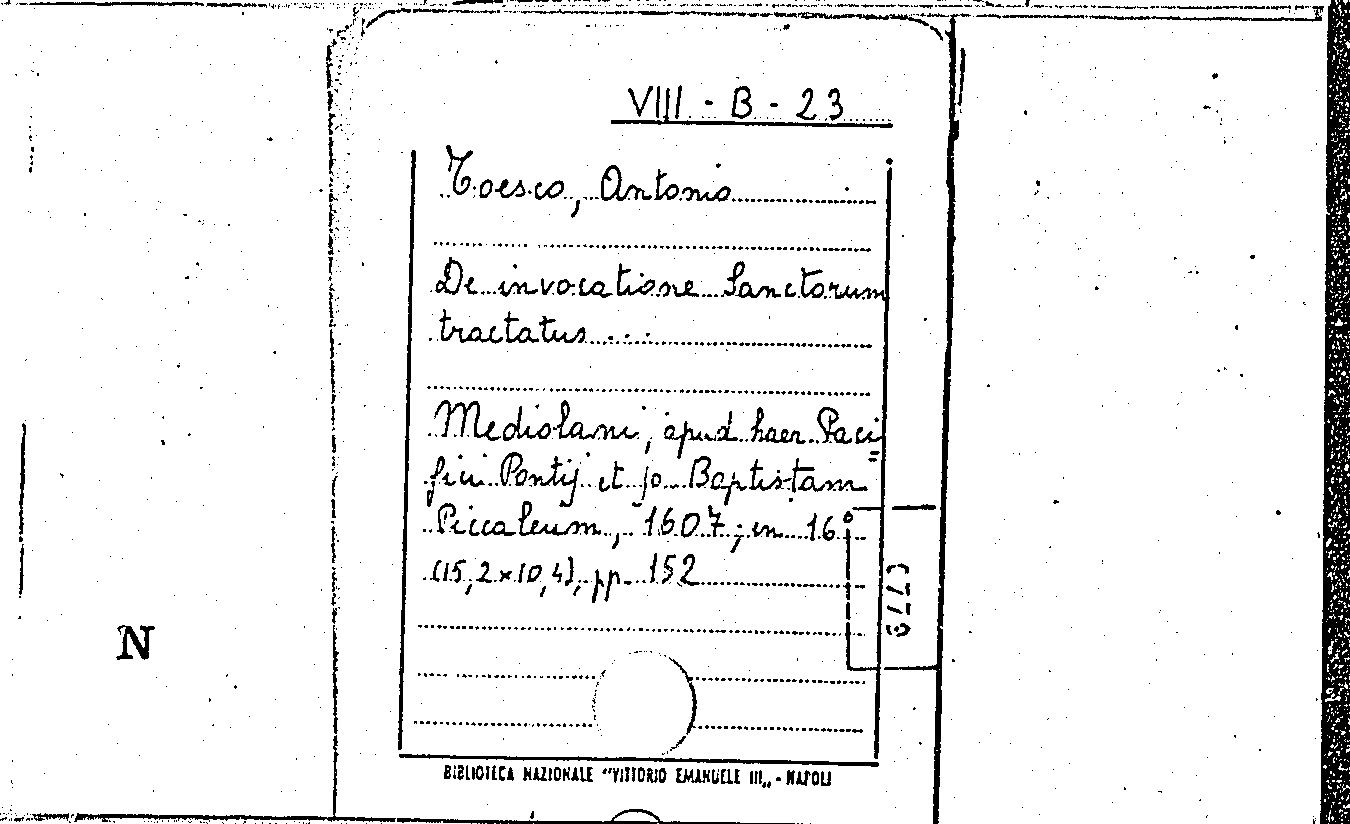 VIII - B - 23
Toesco, Antonio
De invocatione Sanctorum
tractatus ...
Mediolani, apud haer. Paci=
fici Pontij et jo. Baptistam
Piccaleum, 1607; in 16°
(15,2×10,4), pp. 152
N
BIBLIOTECA NAZIONALE "VITTORIO EMANUELE III„ - NAPOLI